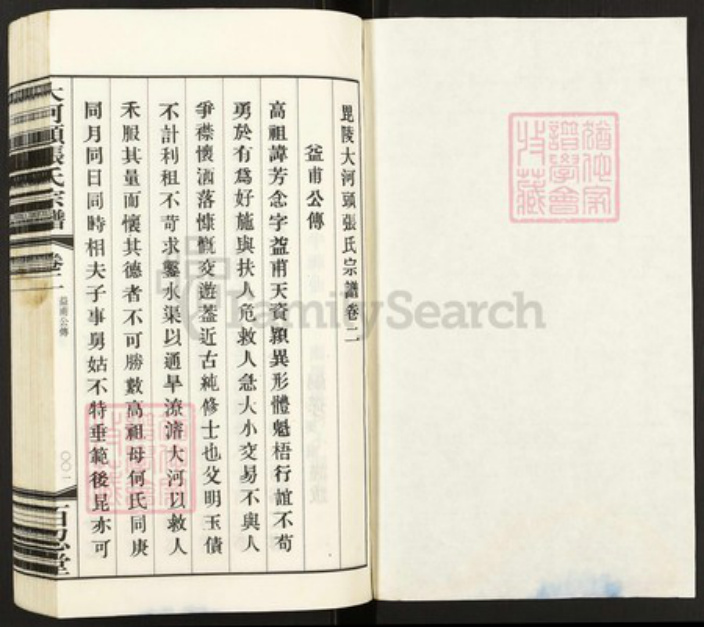 毘陵大河頭張氏宗譜卷二
益甫公傳
高祖諱芳念字益甫天資穎異形體魁梧行誼不苟
勇於有爲好施與扶人危救人急大小交易不與人
爭襟懷洒落慷慨交遊蓋近古純修士也父明玉債
不計利租不苛求鑿水渠以通旱潦濬大河以救人
禾服其量而懷其德者不可勝數高祖母何氏同庚
同月同日同時相夫子事舅姑不特垂範後昆亦可
大河頭張氏宗譜
卷二
益甫公傳
〇〇一
百忍堂
FamilySearch